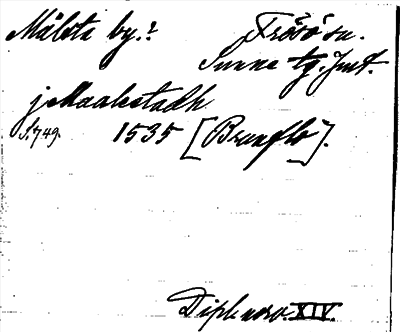 Målsta by.? Frösö sn.
Sunne tg. Jmt.
j Maalestadh
S. 749. 1535 [Brunflo].
Dipl. norv. XIV.